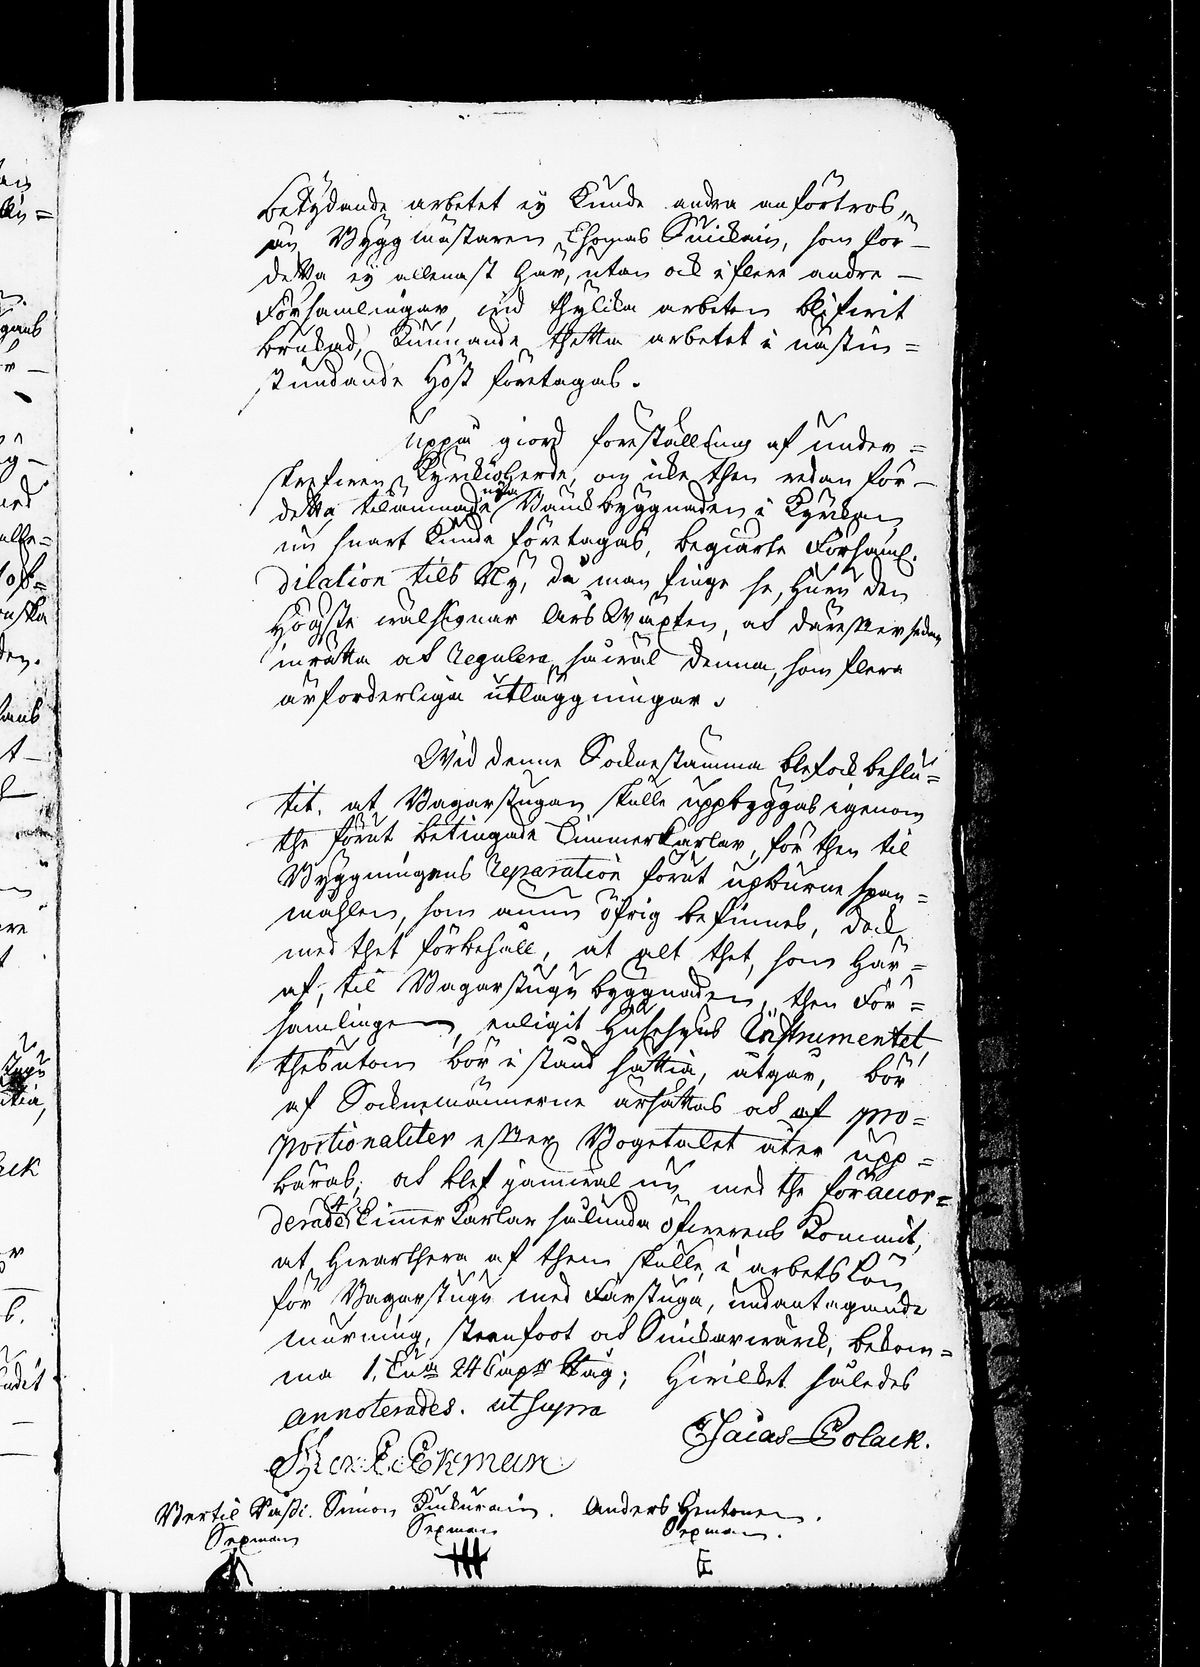 betydande arbetet ej kunde andra anförtros,
än Byggmästaren Thomas Suikain, som för-
detta ej allenast här, utan ock i flere andre
Församlingar, vid thylika arbeten blifwit
brukad, kunnande thetta arbetet i nästin=
stundande Höst företagas.
Uppå giord föreställning af under=
skrefwen Kyrkioherde, om icke then redan för-
detta tilämnade nya Bänckbyggnaden i Kyrkan
nu snart kunde företagas, begiärte Församl.
dilation tils Ny, då man finge se, huru den
Högste wälsignar Års Wäxten, at därefter sedan
inrätta ock regulera såwäl denna, som flera
ärforderliga utläggningar.
Wid denne Socknestämma blef ock beslu=
tit, at Bagarstugan skulle uppbyggas igenom
the förut betingade Timmerkarlar, för then til
Byggningens reparation förut upburne span=
måhlen, som ännu öfrig befinnes, dock
med thet förbehåll, at alt thet, som här=
af, til Bagarstugu byggnaden, then För=
samlingen, enligit Husesyns Instrumentet,
thesutom bör i stånd sättia, utgår, bör
af Socknemännerne ärsättas och af pro=
portionaliter efter Bogetalet åter upp=
bäras; ock blef jämwäl nu med the föracor=
derade 4 Timmerkarlar sålunda öfwerens kommit,
at hwarthera af them skulle i arbetslön
för Bagarstugu med Farstuga, undantagande
murning, steenfoot och Snickarwärck, bekom=
ma 1. Tna 24 Capr Råg; Hwilket således
annoterades. ut supra
Esaias Polack.
Ekman
Bertil Simon Kuckurain. Anders Hentonen.
Sexman Sexman Sexman.